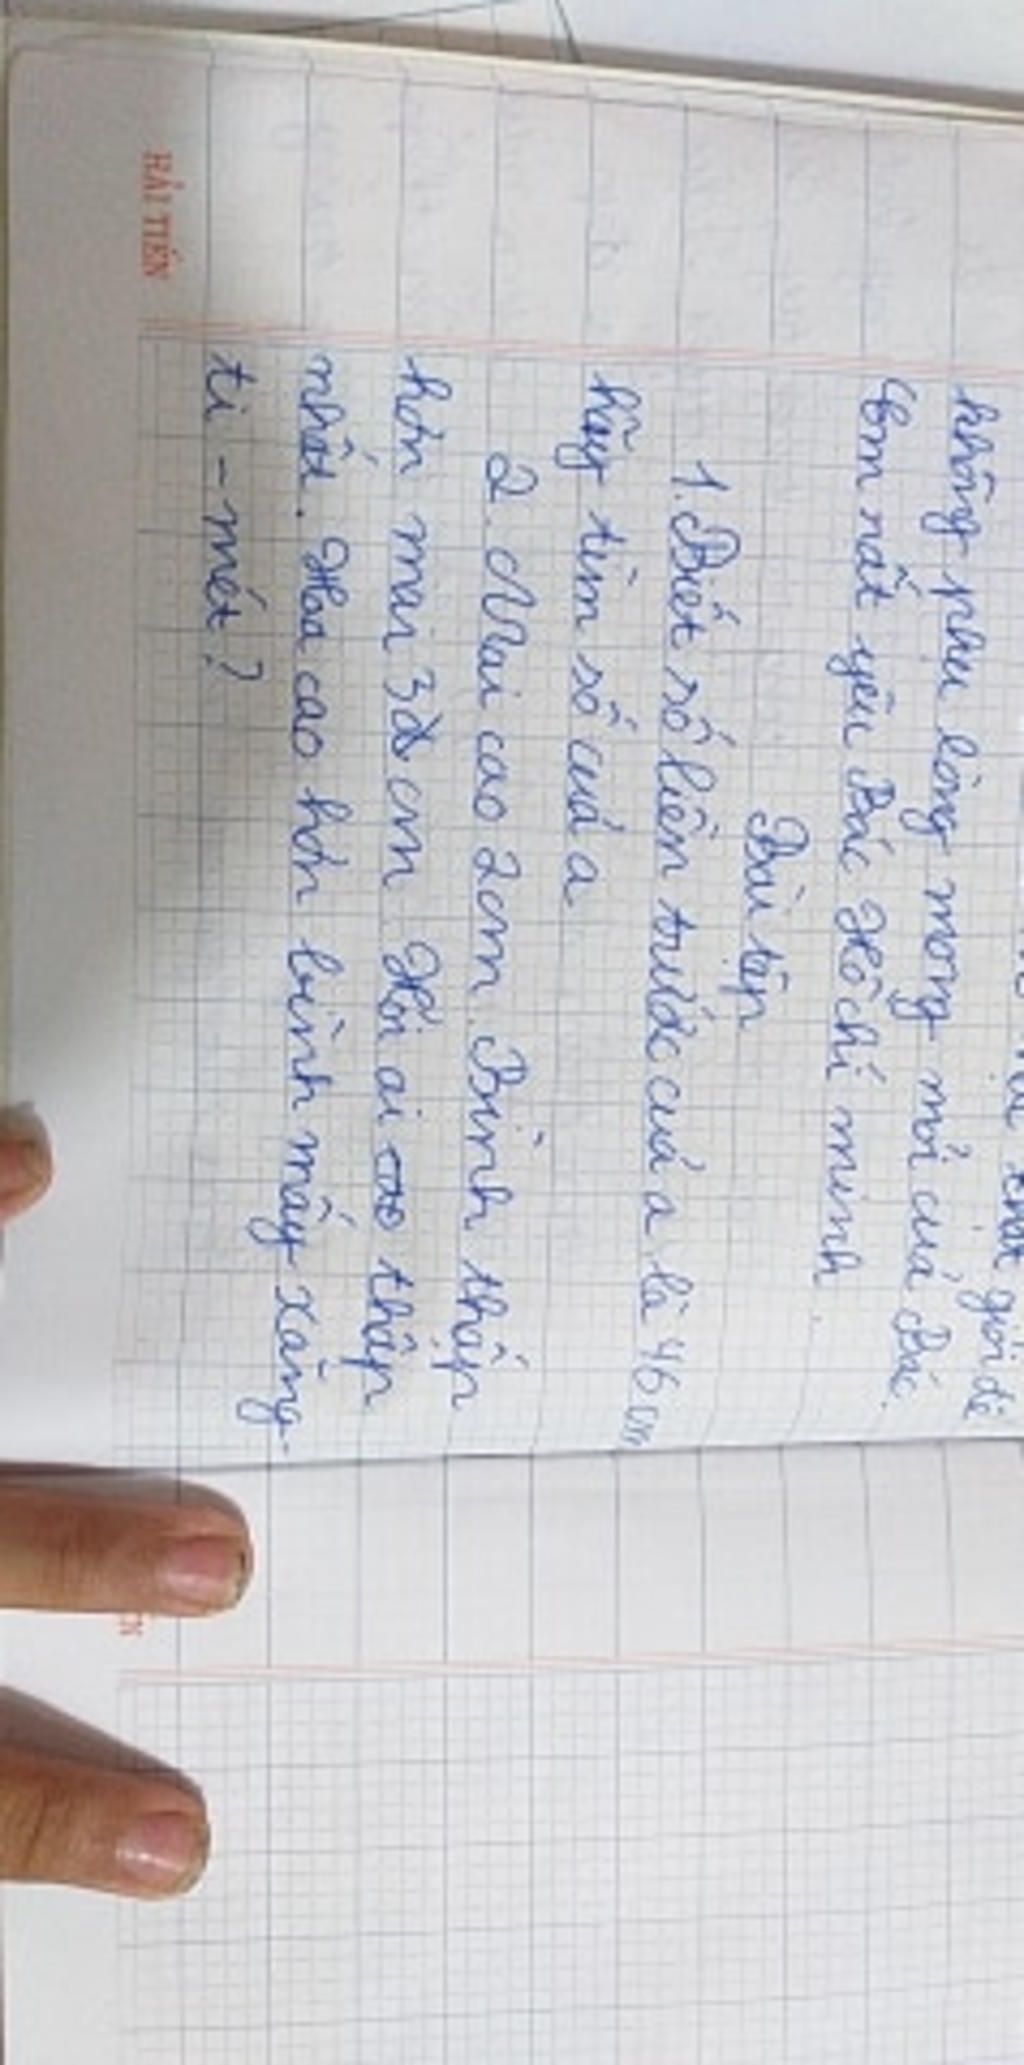 không phụ lòng mong mỏi của Bác.
Em rất yêu Bác Hồ chí minh.
Bài tập
1. Biết số liền trước của a là 46 cm
hãy tìm số của a
2. Mai cao 2cm. Bình thấp
hơn mai 3 cm Hỏi ai cao thấp
nhất. Hoa cao hơn bình mấy xăng-
ti-mét?
HẢI TIẾN